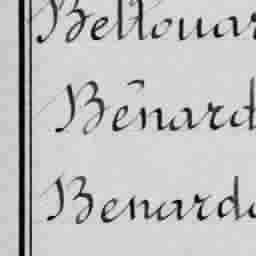 Bellouar
Bénard
Benardo